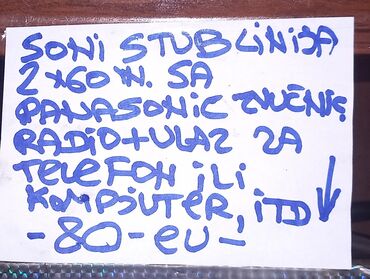 SONI STUB LINIJA
2x60W. SA
PANASONIC ZVUČNIK
RADIO+ULAZ ZA
TELEFON ILI
KOMPJUTER, ITD
-80-eu-